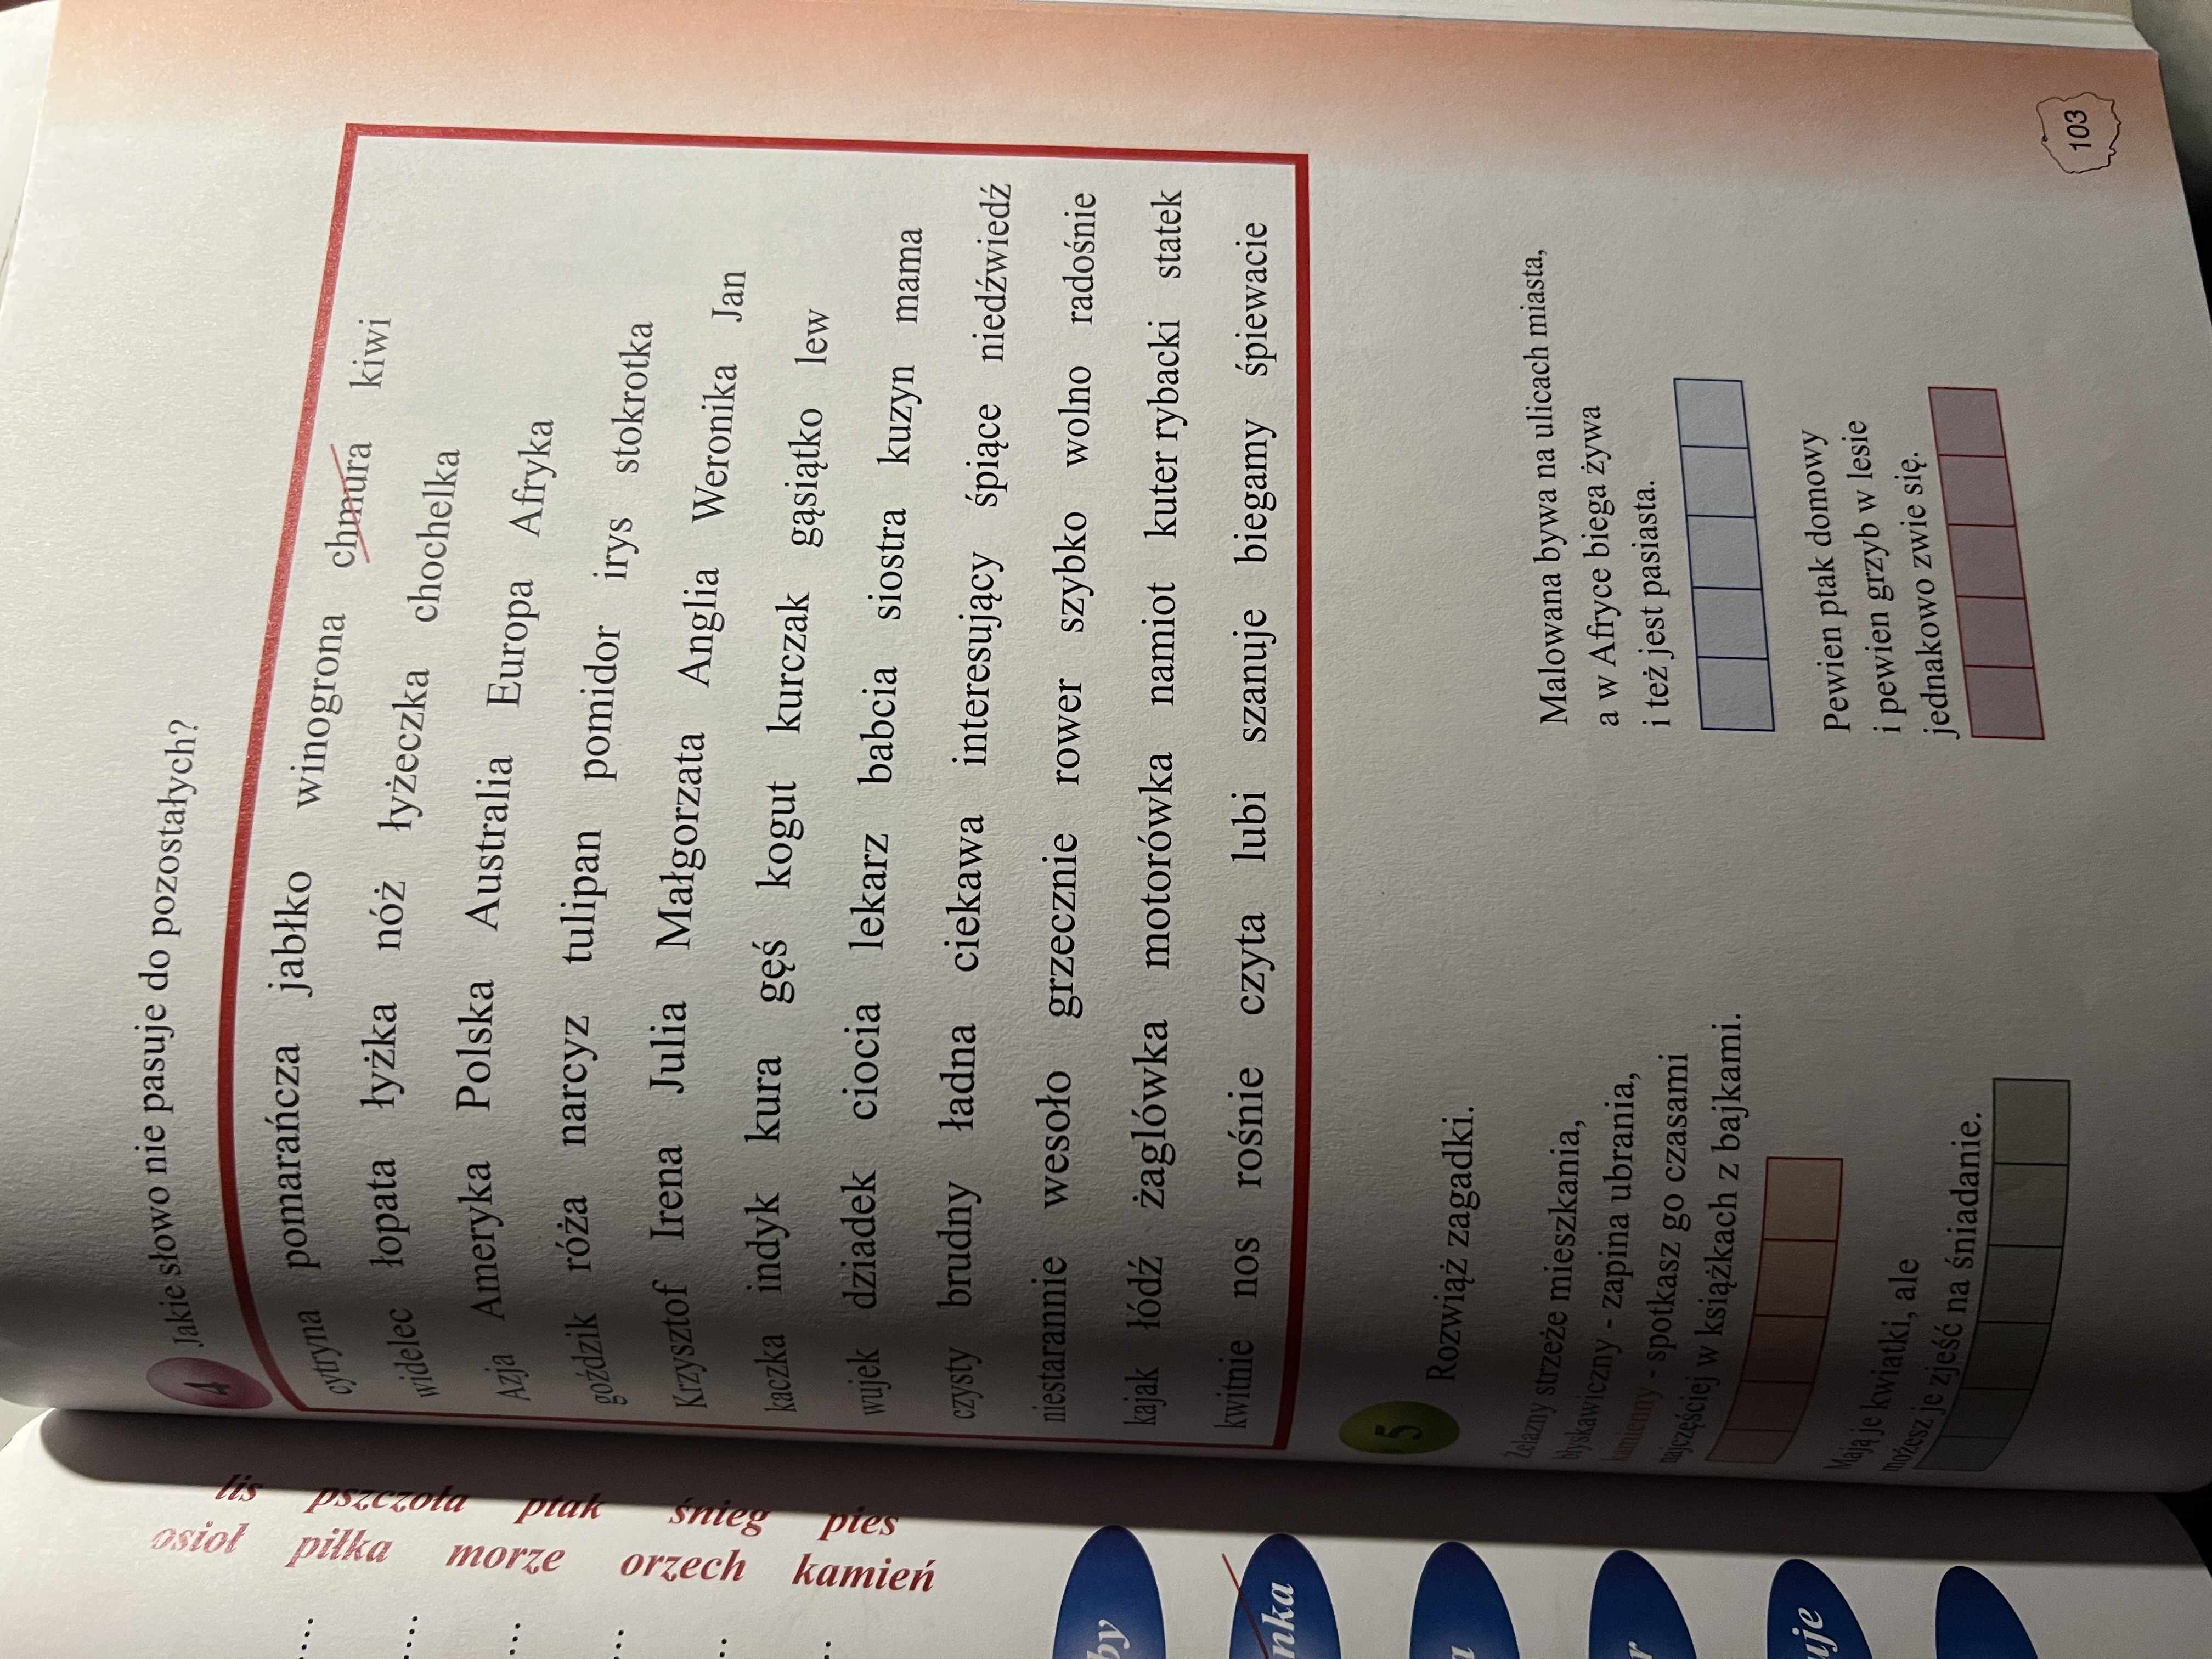 lis pszczoła ptak śnieg pies
osioł piłka morze orzech kamień
by
nka
a
r
uje
4 Jakie słowo nie pasuje do pozostałych?
cytryna pomarańcza jabłko winogrona chmura kiwi
widelec łopata łyżka nóż łyżeczka chochelka
Azja Ameryka Polska Australia Europa Afryka
goździk róża narcyz tulipan pomidor irys stokrotka
Krzysztof Irena Julia Małgorzata Anglia Weronika Jan
kaczka indyk kura gęś kogut kurczak gąsiątko lew
wujek dziadek ciocia lekarz babcia siostra kuzyn mama
czysty brudny ładna ciekawa interesujący śpiące niedźwiedź
niestarannie wesoło grzecznie rower szybko wolno radośnie
kajak łódź żaglówka motorówka namiot kuter rybacki statek
kwitnie nos rośnie czyta lubi szanuje biegamy śpiewacie
5 Rozwiąż zagadki.
Żelazny strzeże mieszkania,
błyskawiczny - zapina ubrania,
kamienny - spotkasz go czasami
najczęściej w książkach z bajkami.
Mają je kwiatki, ale
możesz je zjeść na śniadanie.
Malowana bywa na ulicach miasta,
a w Afryce biega żywa
i też jest pasiasta.
Pewien ptak domowy
i pewien grzyb w lesie
jednakowo zwie się.
103